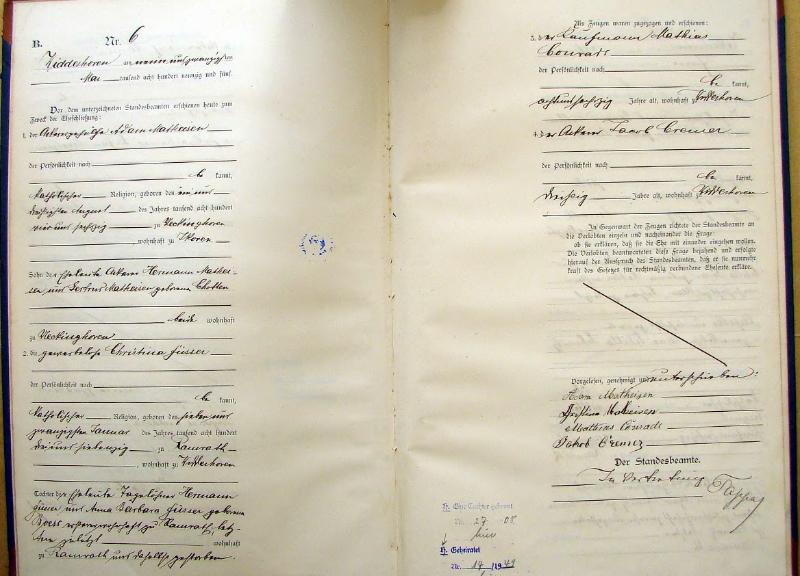 B. Nr. 6
Widdeshoven am neunundzwanzigsten
Mai tausend acht hundert neunzig und fünf.
Vor dem unterzeichneten Standesbeamten erschienen heute zum
Zweck der Eheschließung:
1. der Ackergehülfe Adam Matheisen
der Persönlichkeit nach
be kannt,
katholischer Religion, geboren den ein und
dreißigsten August des Jahres tausend acht hundert
vier und sechzig zu Neckinghoven
, wohnhaft zu Hoven
Sohn der Eheleute Ackerer Hermann Mathei-
sen und Gertrud Matheisen geborene
beide wohnhaft
zu Neckinghoven
2. die gewerbelose Christina
der Persönlichkeit nach
be kannt,
katholischer Religion, geboren den sieben und
zwanzigsten Januar des Jahres tausend acht hundert
drei und siebenzig zu Ramrath
, wohnhaft zu Widdeshoven
Tochter der Eheleute Tagelöhner Hermann
und Anna Barbara geborene
zu Ramrath, letz-
tere zuletzt wohnhaft
zu Ramrath und daselbst gestorben
Als Zeugen waren zugezogen und erschienen:
3. der Kaufmann Mathias
Conrads
der Persönlichkeit nach
be kannt,
achtundsechzig Jahre alt, wohnhaft zu Widdeshoven
4. der Ackerer Jacob Cremer
der Persönlichkeit nach
be kannt,
dreißig Jahre alt, wohnhaft zu Widdeshoven
In Gegenwart der Zeugen richtete der Standesbeamte an
die Verlobten einzeln und nacheinander die Frage:
ob sie erklären, daß sie die Ehe mit einander eingehen wollen.
Die Verlobten beantworteten diese Frage bejahend und erfolgte
hierauf der Ausspruch des Standesbeamten, daß er sie nunmehr
kraft des Gesetzes für rechtmäßig verbundene Eheleute erkläre.
Vorgelesen, genehmigt und unterschrieben:
Adam Matheisen
Christina Matheisen
Mathias Conrads
Jakob Cremer
Der Standesbeamte.
In Vertretung
H. Eine Tochter geboren
Nr. 27 08
hier
H. Geheiratet
Nr. 14 /1949